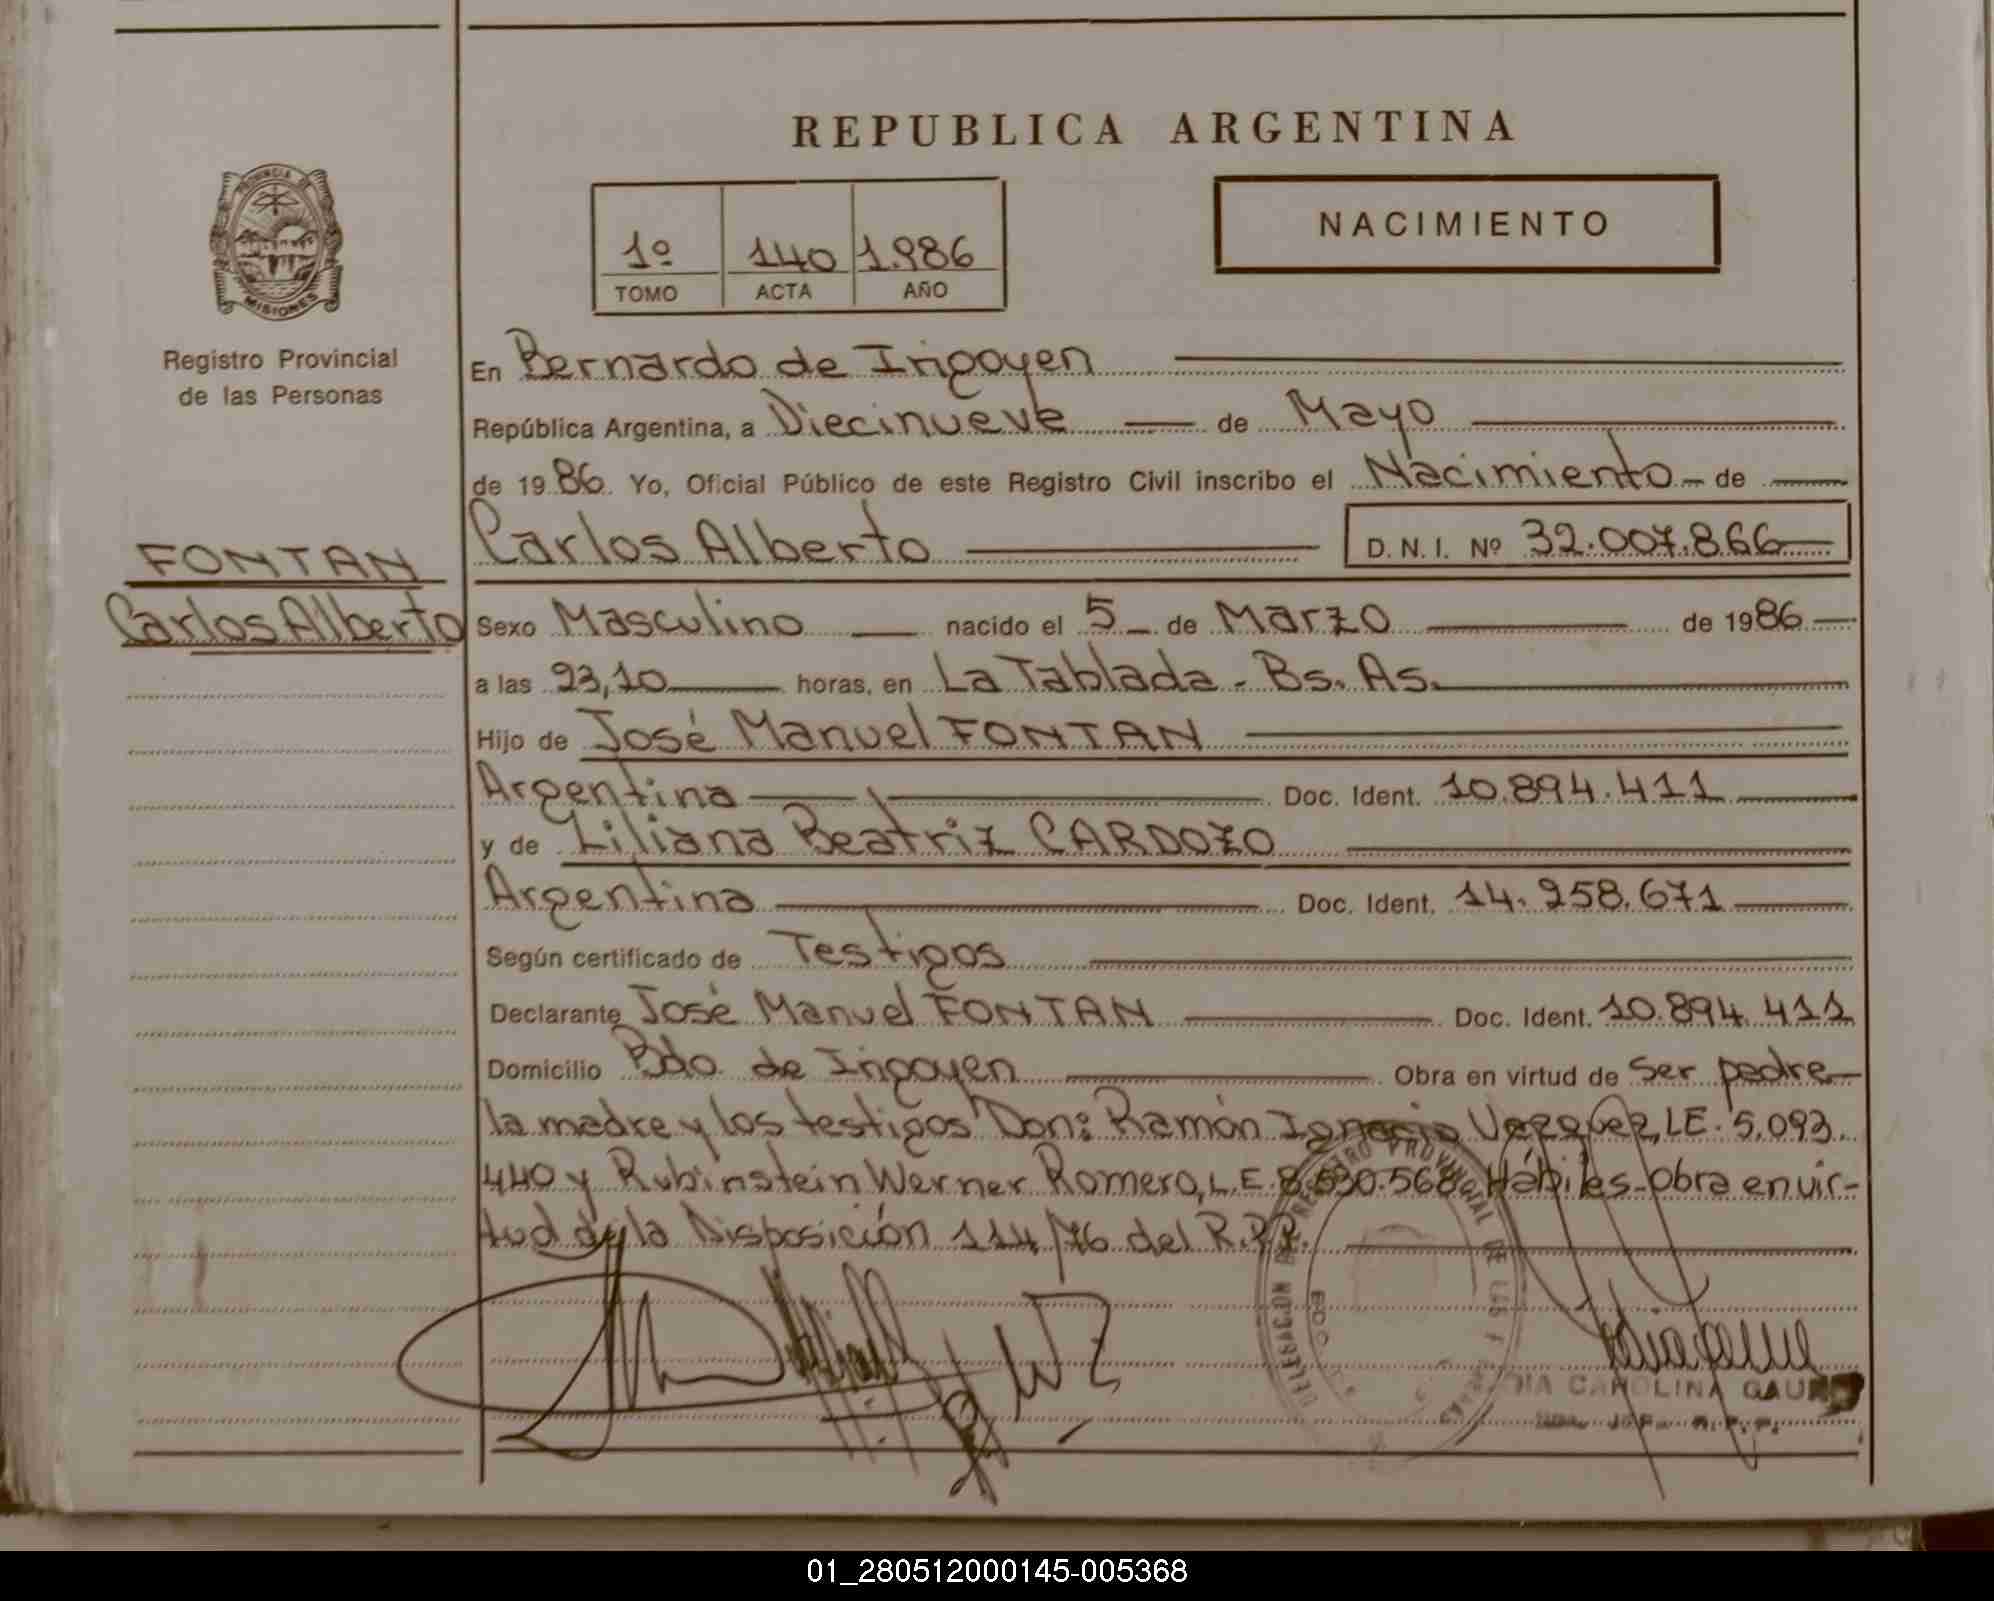 REPUBLICA ARGENTINA
PROVINCIA DE
MISIONES
Registro Provincial
de las Personas
1º 140 1.986
TOMO ACTA AÑO
NACIMIENTO
En Bernardo de Irigoyen
República Argentina, a Diecinueve de Mayo
de 1986 Yo, Oficial Público de este Registro Civil inscribo el Nacimiento de
Carlos Alberto D. N. I. Nº 32.007.866
FONTAN
Carlos Alberto
Sexo Masculino nacido el 5 de Marzo de 1986
a las 23,10 horas, en La Tablada - Bs. As.
Hijo de José Manuel FONTAN
Argentina Doc. Ident. 10.894.411
y de Liliana Beatriz CARDOZO
Argentina Doc. Ident. 14.258.671
Según certificado de Testigos
Declarante José Manuel FONTAN Doc. Ident. 10.894.411
Domicilio Bdo. de Irigoyen Obra en virtud de ser padre
la madre y los testigos Don: Ramón Ignacio Vazquez, LE. 5.093.
440 y Rubinstein Werner Romero, L.E. 8.530.568 - Hábiles - Obra en vir-
tud de la Disposición 114/76 del R.P.P.
DELEGACION DEL REGISTRO PROVINCIAL DE LAS
CAROLINA
R.P.P.
01_280512000145-005368